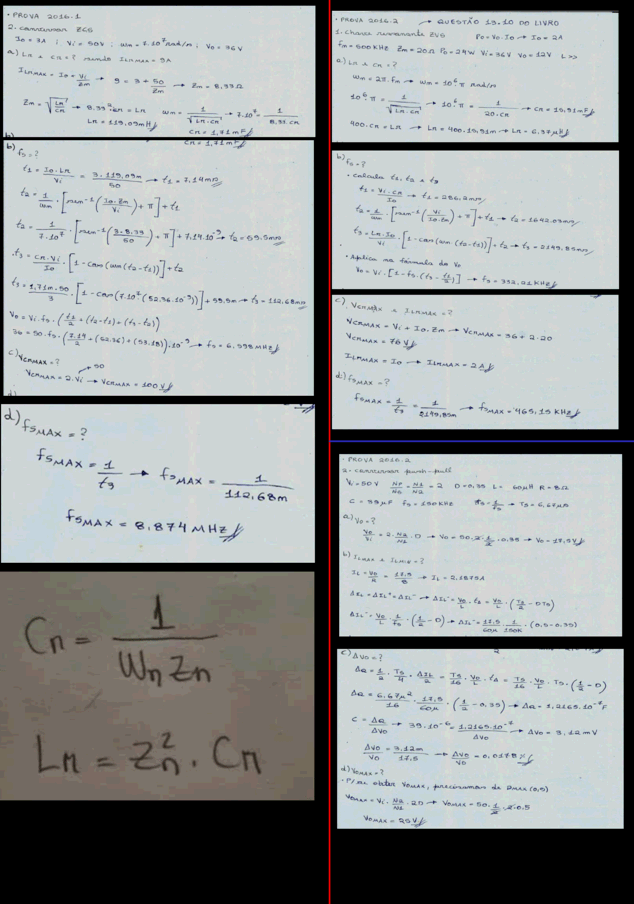 • PROVA 2016.1
2. CONVERSOR ZCS
Io = 3A ; Vi = 50V ; ωm = 7.10⁷ rad/s ; Vo = 36V
a) Ln e Cn = ? quando ILnMAX = 9A
ILnMAX = Io + Vi/Zn → 9 = 3 + 50/Zn → Zn = 8.33Ω
Zn = √(Ln/Cn) → 8.33².Cn = Ln
ωn = 1/√(Ln.Cn) → 7.10⁷ = 1/(8,31.Cn)
Ln = 119,09mH
Cn = 1,71mF
b) fs = ?
t1 = Io.Ln/Vi = 3.119,09m/50 → t1 = 7,14ms
t2 = 1/ωn . [sen⁻¹(Io.Zn/Vi) + π] + t1
t2 = 1/7.10⁷ . [sen⁻¹(3.8,33/50) + π] + 7,14.10⁻⁹ → t2 = 59,5ms
t3 = Cn.Vi/Io . [1 - cos(ωn(t2-t1))] + t2
t3 = 1,71m.50/3 . [1 - cos(7.10⁷(52,36.10⁻⁹))] + 59,5m → t3 = 112,68ms
Vo = Vi.fs.(t1/2 + (t2-t1) + (t3-t2))
36 = 50.fs.(7,14/2 + (52,36) + (53,18)).10⁻⁹ → fs = 6,598MHz
c) VCnMAX = ?
VCnMAX = 2.Vi → VCnMAX = 100V
50
d) fSMAX = ?
fSMAX = 1/t3 → fSMAX = 1/112,68m
fSMAX = 8,874 MHz
Cn = 1/WnZn
Ln = Zn² . Cn
• PROVA 2016.2 → QUESTÃO 13.10 DO LIVRO
1. Chave ressonante ZVS Po = Vo.Io → Io = 2A
fm = 500KHz Zm = 20Ω Po = 24W Vi = 36V Vo = 12V L >>
a) Ln e Cn = ?
ωn = 2π.fn → ωn = 10⁶.π rad/s
10⁶.π = 1/√(Ln.Cn) → 10⁶.π = 1/20.Cn → Cn = 15,91mF
400.Cn = Ln → Ln = 400.15,91m → Ln = 6,37μH
b) fs = ?
• Calcula t1, t2 e t3
t1 = Vi.Cn/Io → t1 = 286,2ms
t2 = 1/ωn . [sen⁻¹(Vi/Io.Zn) + π] + t1 → t2 = 1642,03ms
t3 = Ln.Io/Vi . [1 - cos(ωn(t2-t1))] + t2 → t3 = 2149,85ms
• Aplica na fórmula do Vo
Vo = Vi.[1 - fs.(t3 - t1/2)] → fs = 332,21KHz
c) VCnMAX e ILnMAX = ?
VCnMAX = Vi + Io.Zn → VCnMAX = 36 + 2.20
VCnMAX = 76V
ILnMAX = Io → ILnMAX = 2A
d) fSMAX = ?
fSMAX = 1/t3 = 1/2149,85m → fSMAX = 465,15KHz
• PROVA 2016.2
2. Conversor push-pull
Vi = 50V NP/NS = N1/N2 = 2 D = 0,35 L = 60μH R = 8Ω
C = 39μF fs = 150KHz Ts = 1/fs → Ts = 6,67μs
a) Vo = ?
Vo/Vi = 2.N2/N1.D → Vo = 50.2.1/2.0,35 → Vo = 17,5V
b) ILMAX e ILMIN = ?
IL = Vo/R = 17,5/8 → IL = 2,1875A
ΔIL = ΔIL⁺ = ΔIL⁻ → ΔIL⁻ = Vo/L . t2 = Vo/L . (Ts/2 - DTs)
ΔIL⁻ = Vo/L . 1/fs . (1/2 - D) → ΔIL⁻ = 17,5/60μ . 1/150K . (0,5 - 0,35)
c) ΔVo = ?
ΔQ = 1/2 . Ts/4 . ΔIL/2 = Ts/16 . Vo/L . t2 = Ts/16 . Vo/L . Ts.(1/2 - D)
ΔQ = 6,67μ²/16 . 17,5/60μ . (1/2 - 0,35) → ΔQ = 1,2165.10⁻⁷F
C = ΔQ/ΔVo → 39.10⁻⁶ = 1,2165.10⁻⁷/ΔVo → ΔVo = 3,12mV
ΔVo/Vo = 3,12m/17,5 → ΔVo/Vo = 0,0178%
d) VoMAX = ?
VoMAX = Vi.N2/N1.2D → VoMAX = 50.1/2.2.0,5
VoMAX = 25V